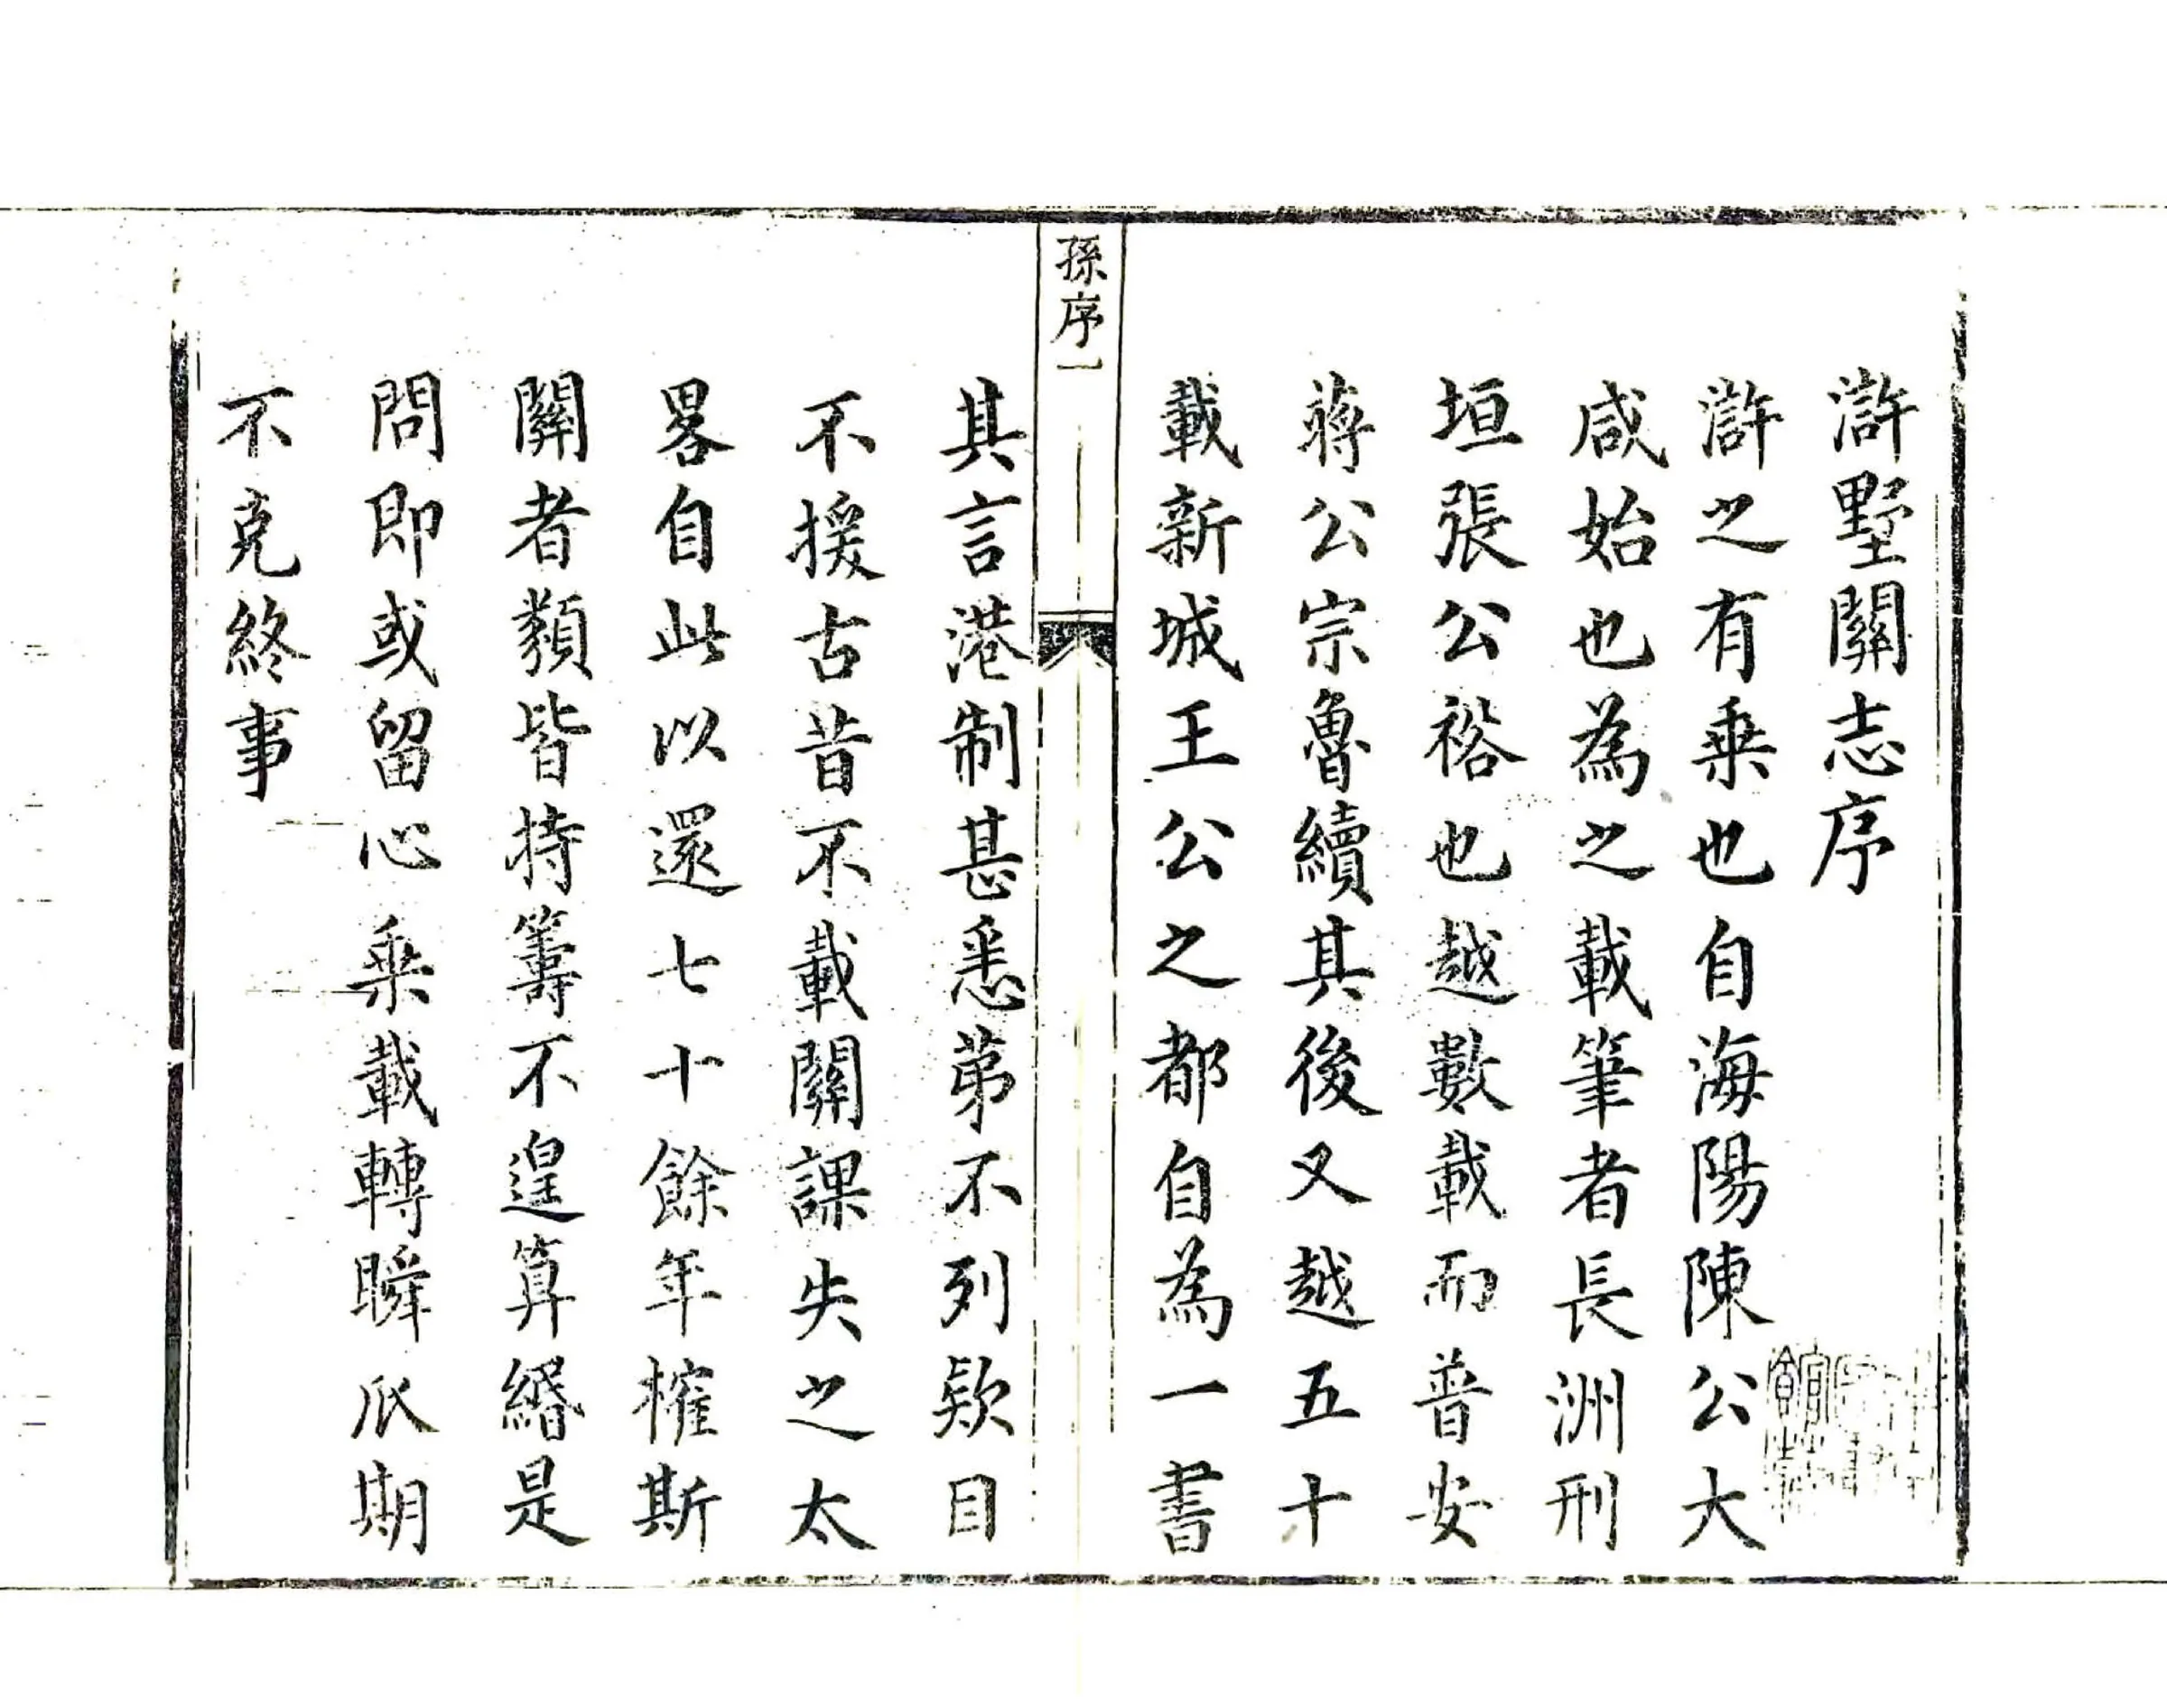 滸墅關志序
滸之有乗也自海陽陳公大
咸始也為之載筆者長洲刑
垣張公裕也越數載而普安
蔣公宗魯續其後又越五十
載新城王公之都自為一書
孫序一
其言港制甚悉苐不列欵目
不援古昔不載關課失之太
畧自此以還七十餘年榷斯
關者類皆持籌不遑算緡是
問即或留心乗載轉瞬瓜期
不克終事